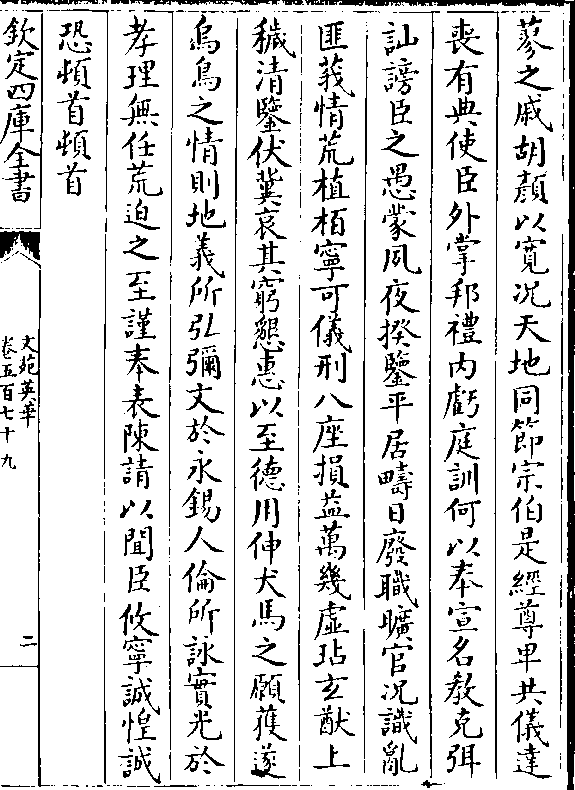 蓼之戚胡顔以寛况天地同節宗伯是經尊卑共儀達
喪有典使臣外掌邦禮内虧庭訓何以奉宣名教克弭
訕謗臣之愚蒙夙夜揆鑒平居疇日廢職曠官况識亂
匪莪情荒植栢寧可儀刑八座損益萬幾虛玷玄猷上
穢清鑒伏冀哀其窮懇惠以至德用伸犬馬之願獲遂
烏鳥之情則地義所弘彌文於永錫人倫所詠實光於
孝理無任荒迫之至謹奉表陳請以聞臣攸寧誠惶誠
恐頓首頓首
欽定四庫全書
文苑英華
卷五百七十九
二